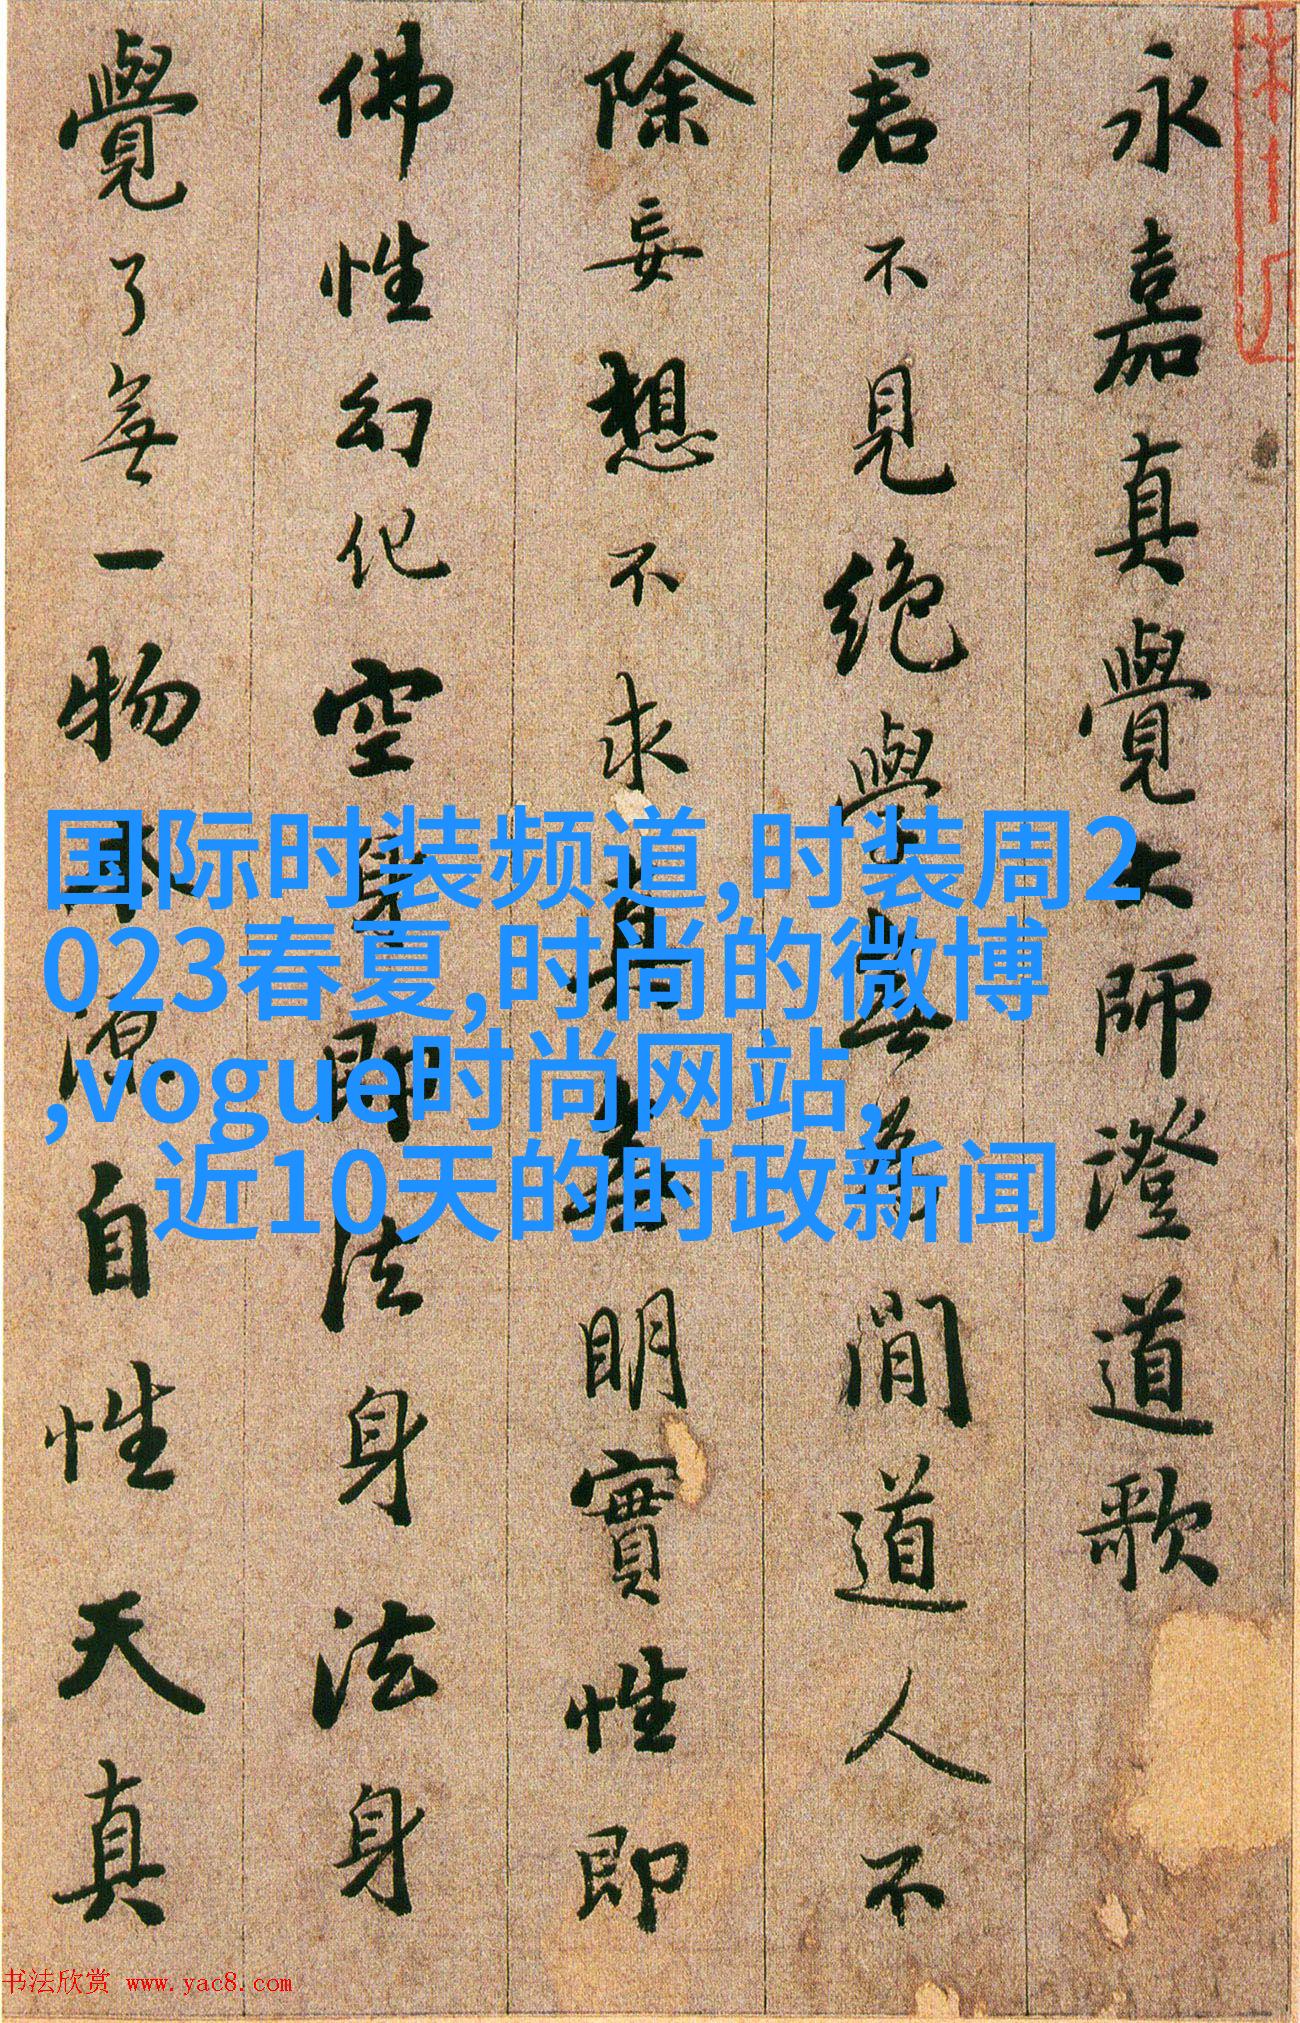 永嘉真覺大師澄道歌
君不見絕學無為閒道人不
除妄想不求真無明實性即
佛性幻化空身即法身法身
覺了無一物本源自性天真
国际时装频道,时装周2
023春夏,时尚的微博
,vogue时尚网站,
近10天的时政新闻
书法欣赏 www.yac8.com